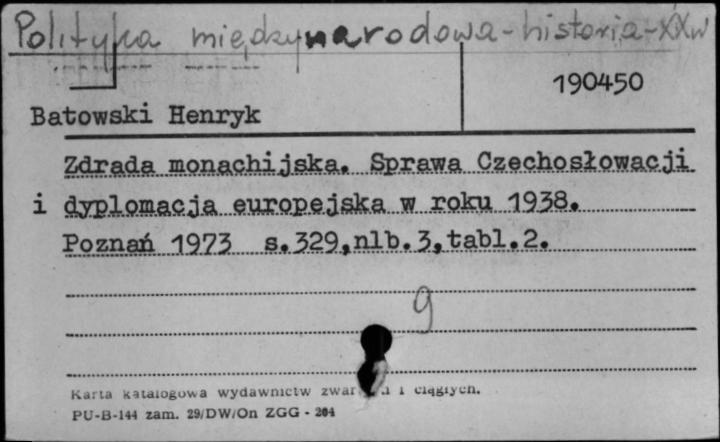 Polityka międzynarodowa - historia - XX w
190450
Batowski Henryk
Zdrada monachijska. Sprawa Czechosłowacji
i dyplomacja europejska w roku 1938.
Poznań 1973 s.329,nlb.3,tabl.2.
g
Karta katalogowa wydawnictw i ciągłych.
PU-B-144 zam. 29/DW/On ZGG - 204